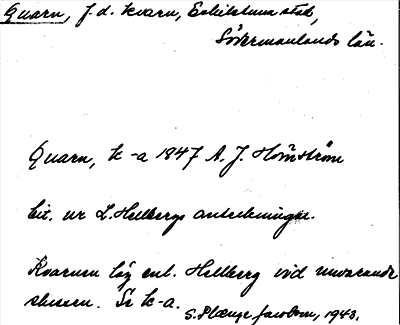 Quarn, f.d. kvarn, Eskilstuna stad,
Södermanlands län.
Quarn, k-a 1847 A. J. Holmström
cit. ur L. Hellbergs anteckningar.
Kvarnen låg enl. Hellberg vid nuvarande
slussen. Se k-a.
S. Plænge Jacobson, 1943.